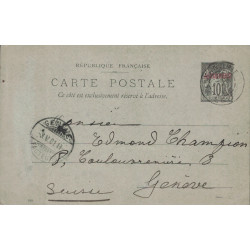 RÉPUBLIQUE FRANÇAISE
CARTE POSTALE
Ce côté est exclusivement réservé à l'adresse.
Monsieur
Edmond Champion
Coulouvrenière 3
Genève
Suisse
10